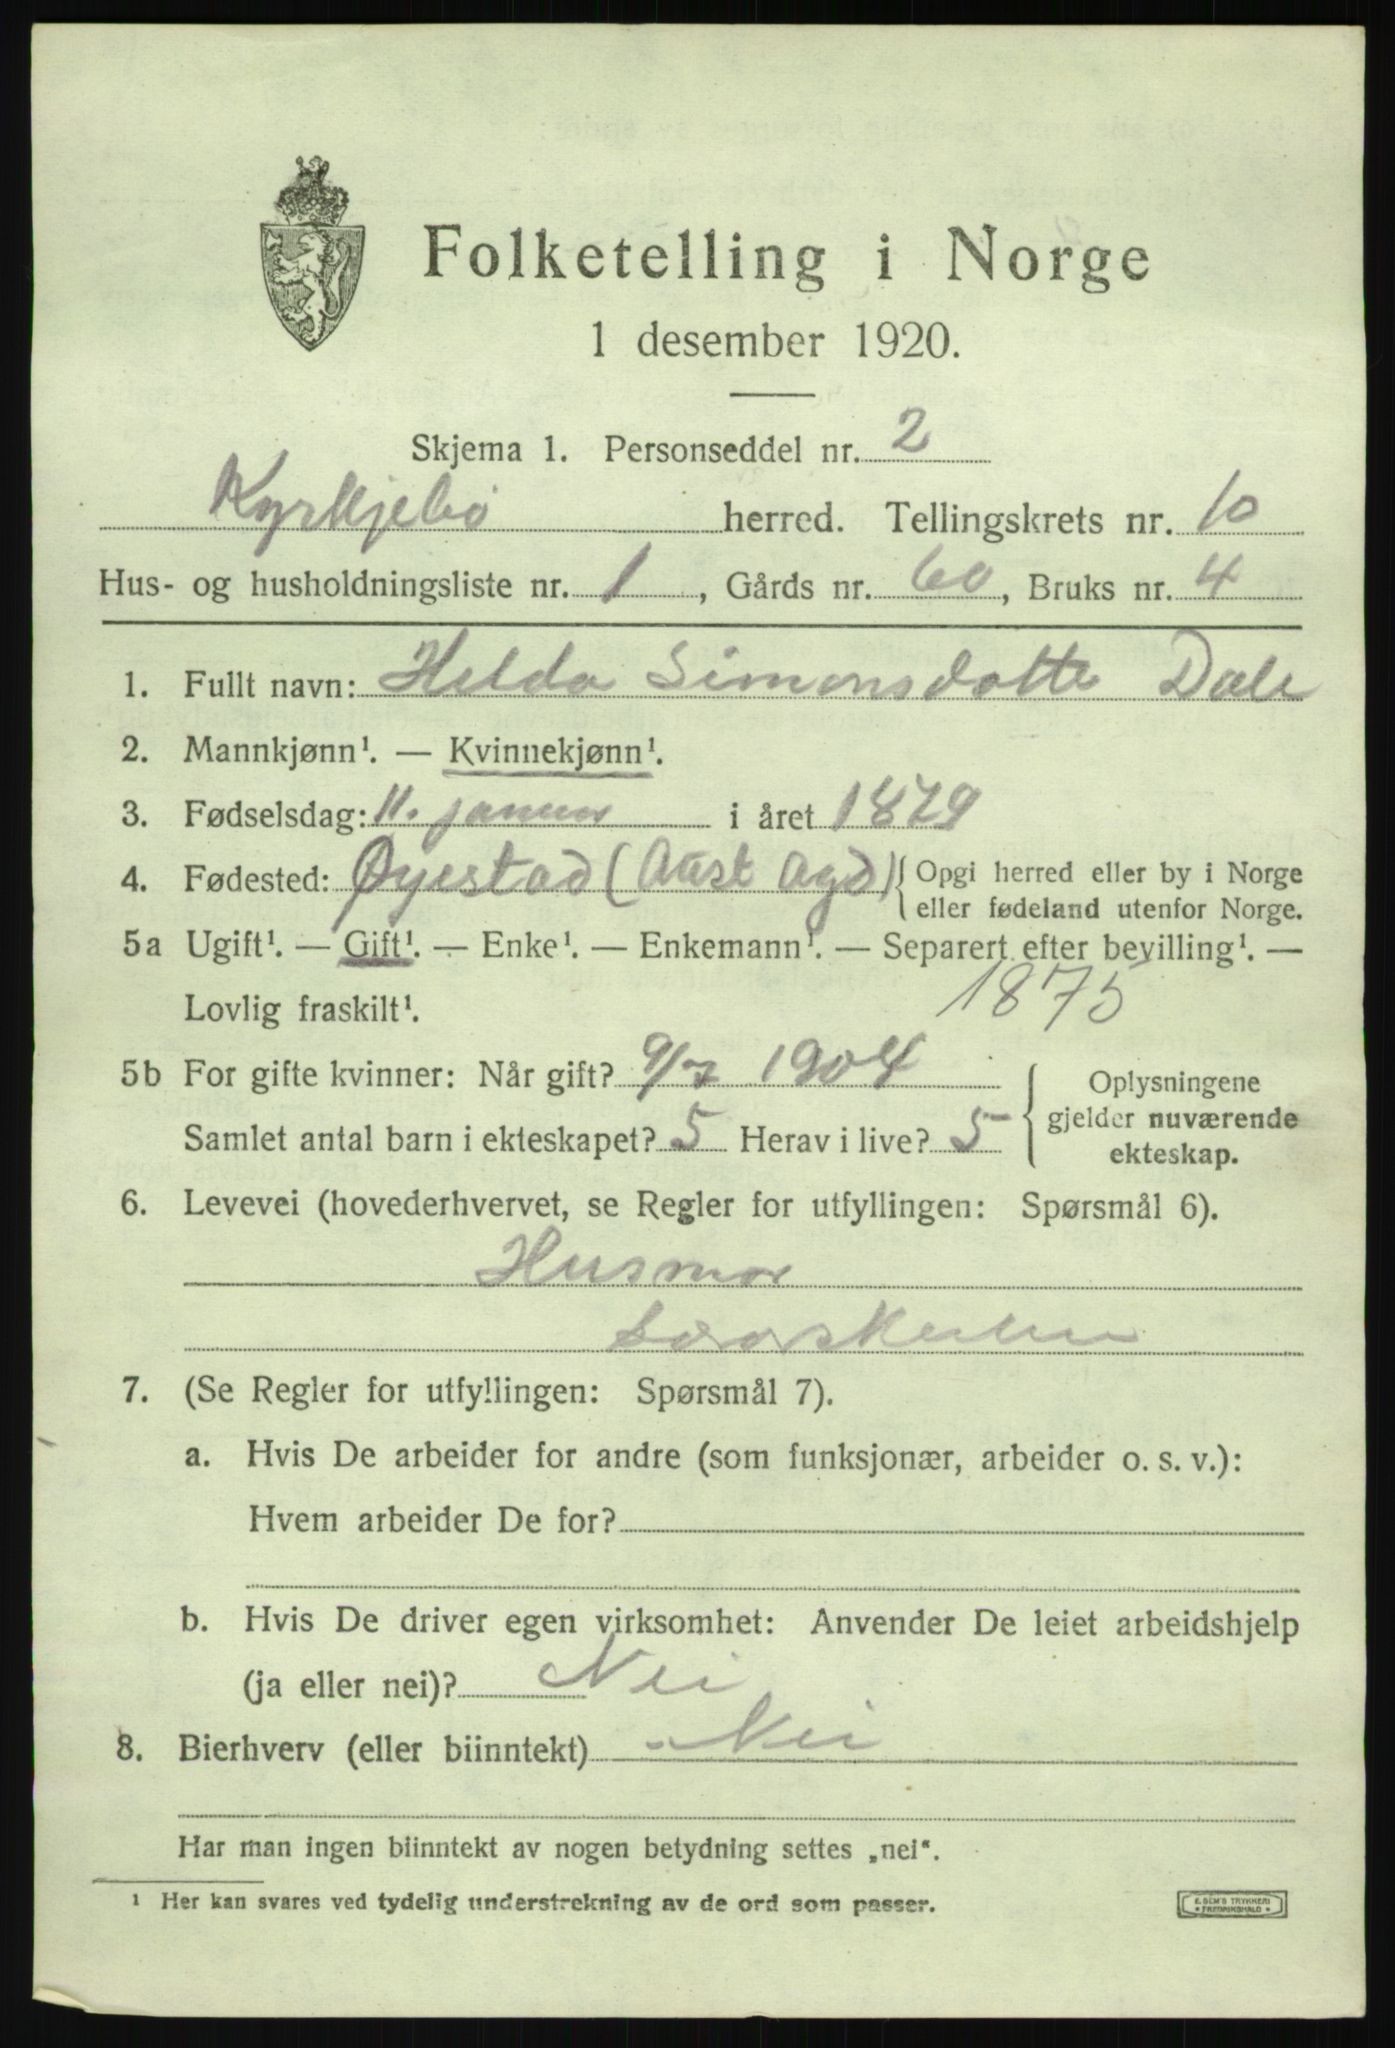 Folketelling i Norge
1 desember 1920.
Skjema 1. Personseddel nr. 2
Kyrkjebø herred. Tellingskrets nr. 10
Hus- og husholdningsliste nr. 1, Gårds nr. 60, Bruks nr. 4
1. Fullt navn: Helda Simonsdotte Dale
2. Mannkjønn¹. — Kvinnekjønn¹.
3. Fødselsdag: 11. januar i året 1879
4. Fødested: Øyestad (Aust Agd) { Opgi herred eller by i Norge
eller fødeland utenfor Norge.
5a Ugift¹. — Gift¹. — Enke¹. — Enkemann¹. — Separert efter bevilling¹. —
Lovlig fraskilt¹. 1875
5b For gifte kvinner: Når gift? 9/7 1904 { Oplysningene
gjelder nuværende
ekteskap.
Samlet antal barn i ekteskapet? 5 Herav i live? 5
6. Levevei (hovederhvervet, se Regler for utfyllingen: Spørsmål 6).
Husmor
7. (Se Regler for utfyllingen: Spørsmål 7).
a. Hvis De arbeider for andre (som funksjonær, arbeider o. s. v.):
Hvem arbeider De for?
b. Hvis De driver egen virksomhet: Anvender De leiet arbeidshjelp
(ja eller nei)? Nei
8. Bierhverv (eller biinntekt) Nei
Har man ingen biinntekt av nogen betydning settes „nei“.
¹ Her kan svares ved tydelig understrekning av de ord som passer.
E. SEM'S TRYKKERI
* FREDRIKSHALD *